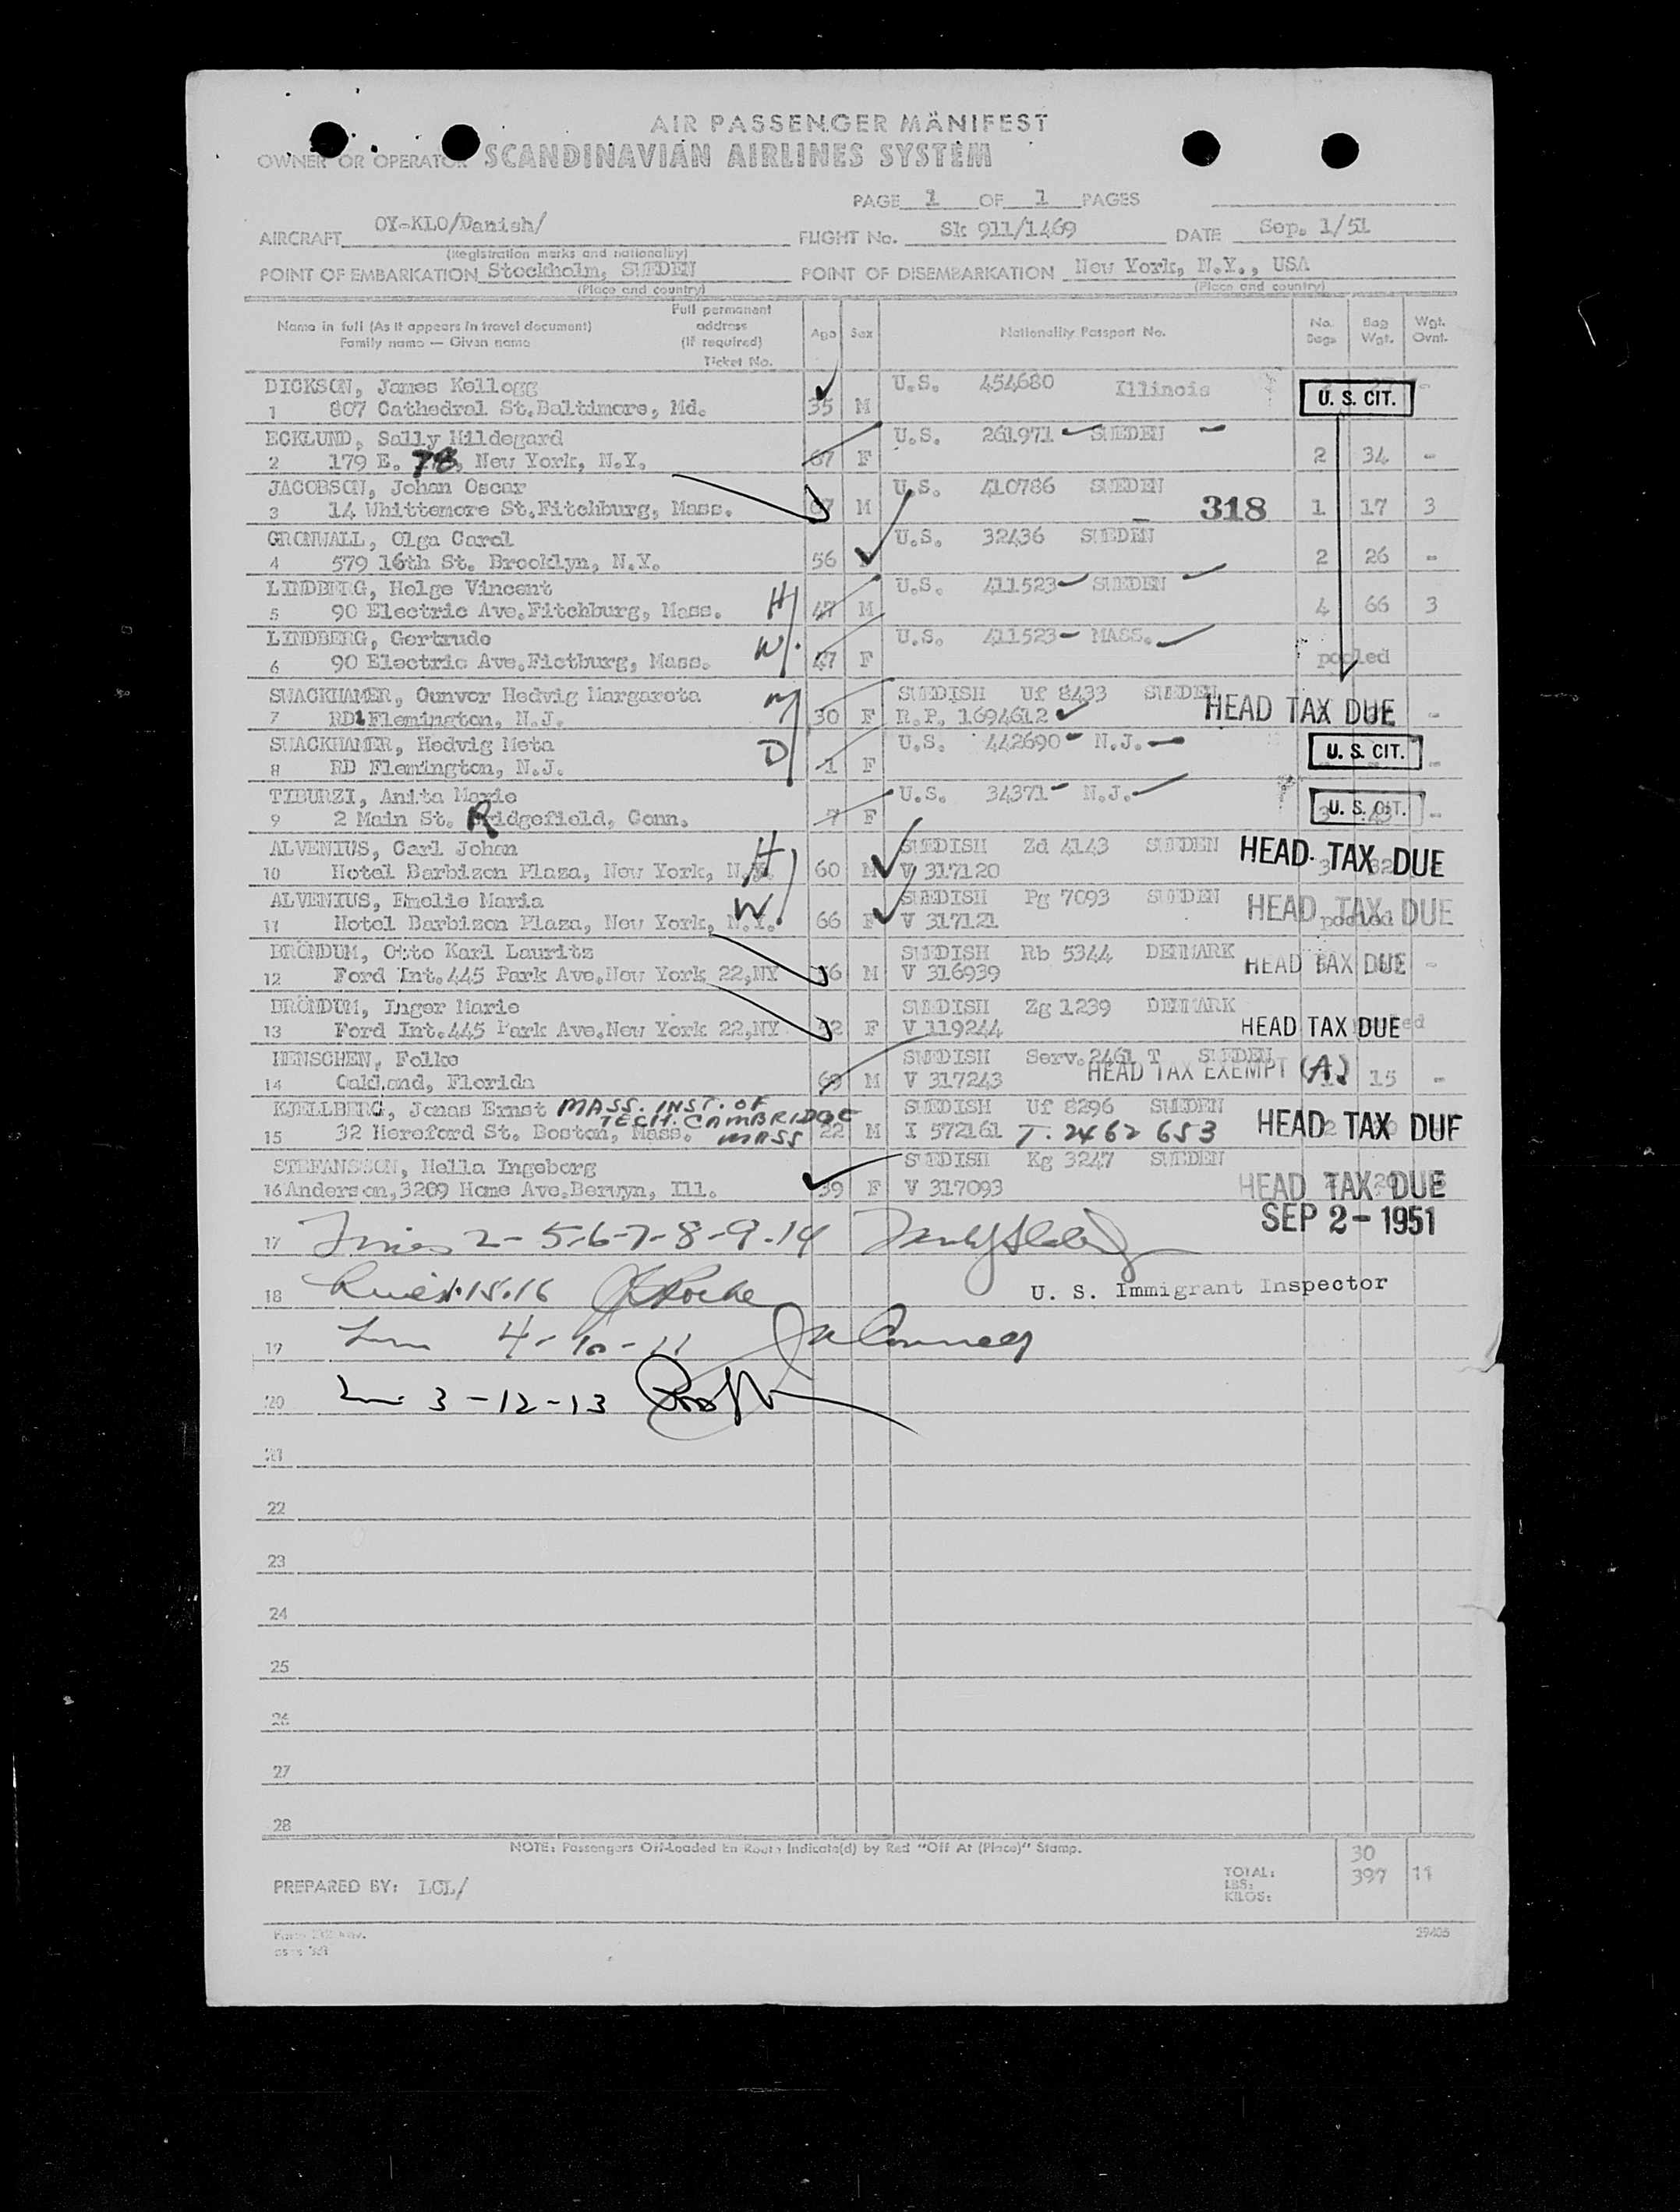 AIR PASSENGER MANIFEST
OWNER OR OPERATOR SCANDINAVIAN AIRLINES SYSTEM
PAGE 1 OF 1 PAGES
AIRCRAFT OY-KLO/Danish/ FLIGHT No. Sk 911/1469 DATE Sep. 1/51
(Registration marks and nationality)
POINT OF EMBARKATION Stockholm, SWEDEN POINT OF DISEMBARKATION New York, N.Y., USA
(Place and country) (Place and country)
Name in full (As it appears in travel document) Family name — Given name Full permanent address (If required) Ticket No. Age Sex Nationality Passport No. No. Bags Bag Wgt. Wgt. Ovnt.
DICKSON, James Kellogg U.S. 454680 Illinois U. S. CIT. -
1 807 Cathedral St.Baltimore, Md. 35 M
ECKLUND, Sally Hildegard U.S. 261971 SWEDEN
2 179 E. 78, New York, N.Y. 67 F 2 34 -
JACOBSON, Johan Oscar U.S. 410786 SWEDEN
3 14 Whittemore St.Fitchburg, Mass. M 318 1 17 3
GRONWALL, Olga Carol U.S. 32436 SWEDEN
4 579 16th St. Brooklyn, N.Y. 56 2 26 -
LINDBERG, Helge Vincent U.S. 411523 SWEDEN
5 90 Electric Ave.Fitchburg, Mass. H 47 M 4 66 3
LINDBERG, Gertrude U.S. 411523 MASS.
6 90 Electric Ave.Fictburg, Mass. W 47 F pooled
SWACKHAMER, Gunvor Hedvig Margareta M SWEDISH Uf 8433 SWEDEN
7 RD1 Flemington, N.J. 30 F R.P. 1694612 HEAD TAX DUE -
SWACKHAMER, Hedvig Meta U.S. 442690 N.J. U. S. CIT.
8 RD Flemington, N.J. D 1 F -
TIBURZI, Anita Marie U.S. 34371 N.J. U. S. CIT.
9 2 Main St. Ridgefield, Conn. 7 F -
ALVENIUS, Carl Johan H SWEDISH Zd 4143 SWEDEN HEAD TAX DUE
10 Hotel Barbizon Plaza, New York, N.Y. 60 M V 317120
ALVENIUS, Emelie Maria SWEDISH Pg 7093 SWEDEN HEAD TAX DUE
11 Hotel Barbizon Plaza, New York, N.Y. W 66 F V 317121 pooled
BRÖNDUM, Otto Karl Lauritz SWEDISH Rb 5344 DENMARK HEAD TAX DUE -
12 Ford Int.445 Park Ave.New York 22,NY M V 316939
BRÖNDUM, Inger Marie SWEDISH Zg 1239 DENMARK
13 Ford Int.445 Park Ave.New York 22,NY 52 F V 119244 HEAD TAX DUE
HENSCHEN, Folke SWEDISH Serv.2461 T SWEDEN
14 Oakland, Florida 69 M V 317243 HEAD TAX EXEMPT (A) 15 -
KJELLBERG, Jonas Ernst MASS. INST. OF TECH. CAMBRIDGE MASS SWEDISH Uf 8296 SWEDEN
15 32 Hereford St. Boston, Mass. 22 M I 572161 T. 2462 653 HEAD TAX DUE
STEFANSSON, Hella Ingeborg SWEDISH Kg 3247 SWEDEN
16 Anderson,3209 Home Ave.Berwyn, Ill. 39 F V 317093 HEAD TAX DUE
SEP 2 - 1951
17 Lines 2-5-6-7-8-9-14
18 Lines 1.15.16 U. S. Immigrant Inspector
19 4-10-11
20 3-12-13
21
22
23
24
25
26
27
28
NOTE: Passengers Off-Loaded En Route Indicate(d) by Red "Off At (Place)" Stamp.
30
TOTAL: LBS: KILOS: 397 11
PREPARED BY: LCL/
29405